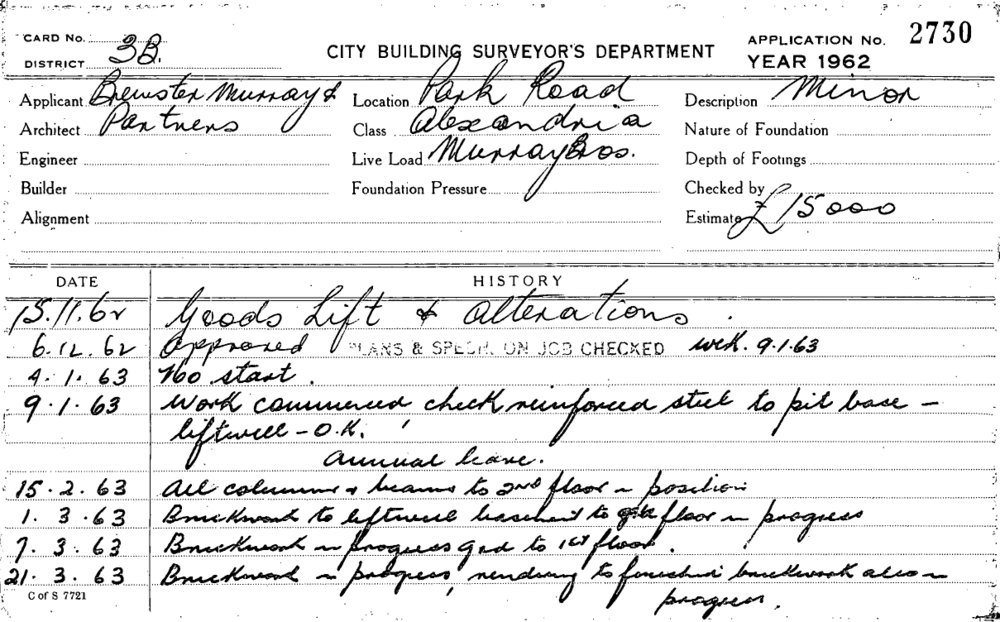 CARD No.
DISTRICT 3B.
CITY BUILDING SURVEYOR'S DEPARTMENT
APPLICATION No. 2730
YEAR 1962
Applicant Brewster Murray &
Architect Partners
Engineer
Builder
Alignment
Location Park Road
Class Alexandria
Live Load Murray Bros.
Foundation Pressure
Description Minor
Nature of Foundation
Depth of Footings
Checked by
Estimate £15000
DATE HISTORY
15.11.62 Goods Lift & alterations.
6.12.62 Approved PLANS & SPECN. ON JOB CHECKED 9.1.63
4.1.63 No start.
9.1.63 Work commenced check reinforced steel to pit base -
liftwell - O.K.
annual leave.
15.2.63 All columns & beams to 2nd floor in position
1.3.63 Brickwork to liftwell basement to floor in progress
7.3.63 Brickwork in progress grd to 1st floor.
21.3.63 Brickwork in progress, rendering to finished brickwork also in
progress.
C of S 7721